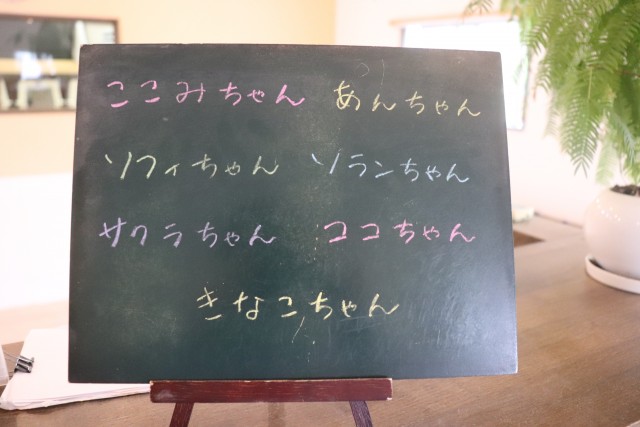 ここみちゃん あんちゃん
ソフィちゃん ソランちゃん
サクラちゃん ココちゃん
きなこちゃん